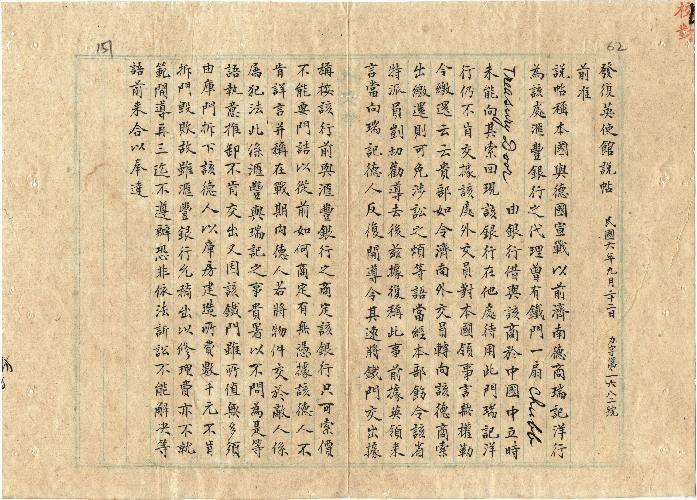 62
151
校對
發復英使館說帖
民國六年九月二十二日
力字第一六八二號
前准
說帖稱本國與德國宣戰以前濟南德商瑞記洋行
為該處滙豐銀行之代理曾有鐵門一扇Chubb
Treasury Door 由銀行借與該商於中國中立時
未能向其索回現該銀行在他處待用此門瑞記洋
行仍不肯交據該處外交員對本國領事言無權勒
令繳還云云貴部如令濟南外交員轉向該德商索
出繳還則可免涉訟之煩等語當經本部飭令該省
特派員剴切勸導去後茲據復稱此事前據英領來
言當向瑞記德人反復開導令其速將鐵門交出據
稱按該行前與滙豐銀行之商定該銀行只可索價
不能要門詰以從前如何商定有無憑據該德人不
肯詳言并稱在戰期内德人若將物件交於敵人係
屬犯法此條滙豐與瑞記之事貴署以不問為是等
語執意推卸不肯交出又因該鐵門雖所值無多須
由庫門拆下該德人以庫房建造所費數千元不肯
拆門毀敗故雖滙豐銀行允稿出以修理費亦不就
範開導再三迄不遵辦恐非依法訴訟不能解决等
語前来合以奉達